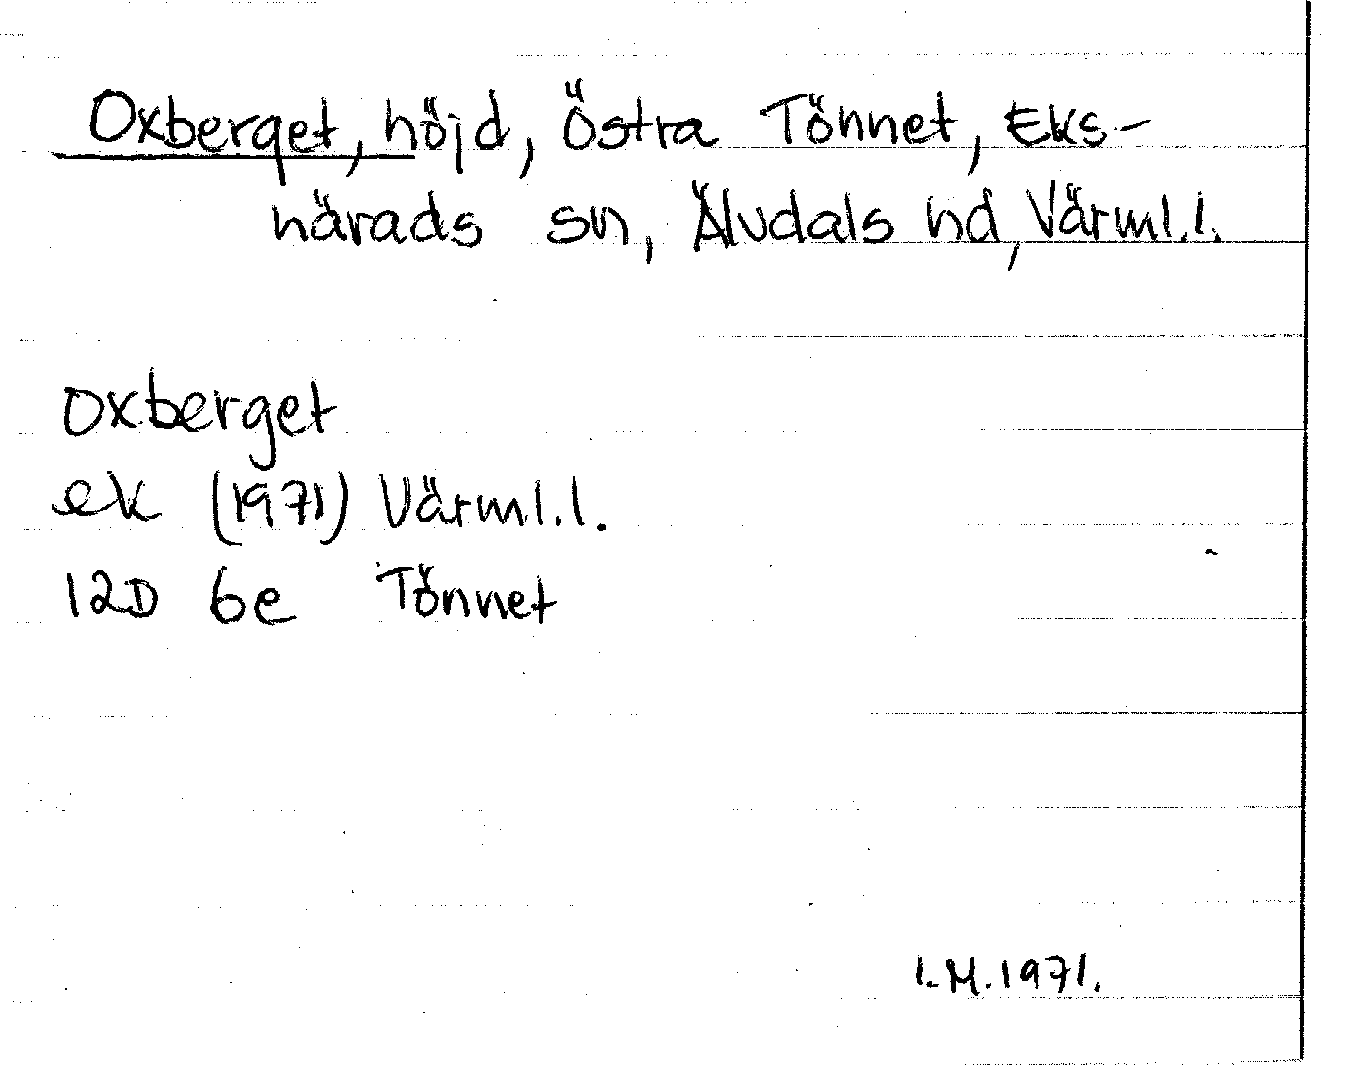 Oxberget, höjd, Östra Tönnet, Eks-
härads sn, Älvdals hd, Värml.l.
Oxberget
ek (1971) Värml.l.
12D 6e Tönnet
I.M.1971.